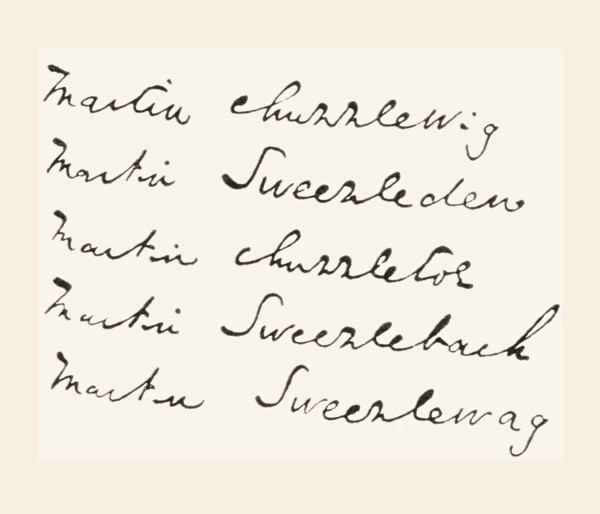 Martin Chuzzlewig
Martin Sweezleden
Martin Chuzzletoe
Martin Sweezleback
Martin Sweezlewag